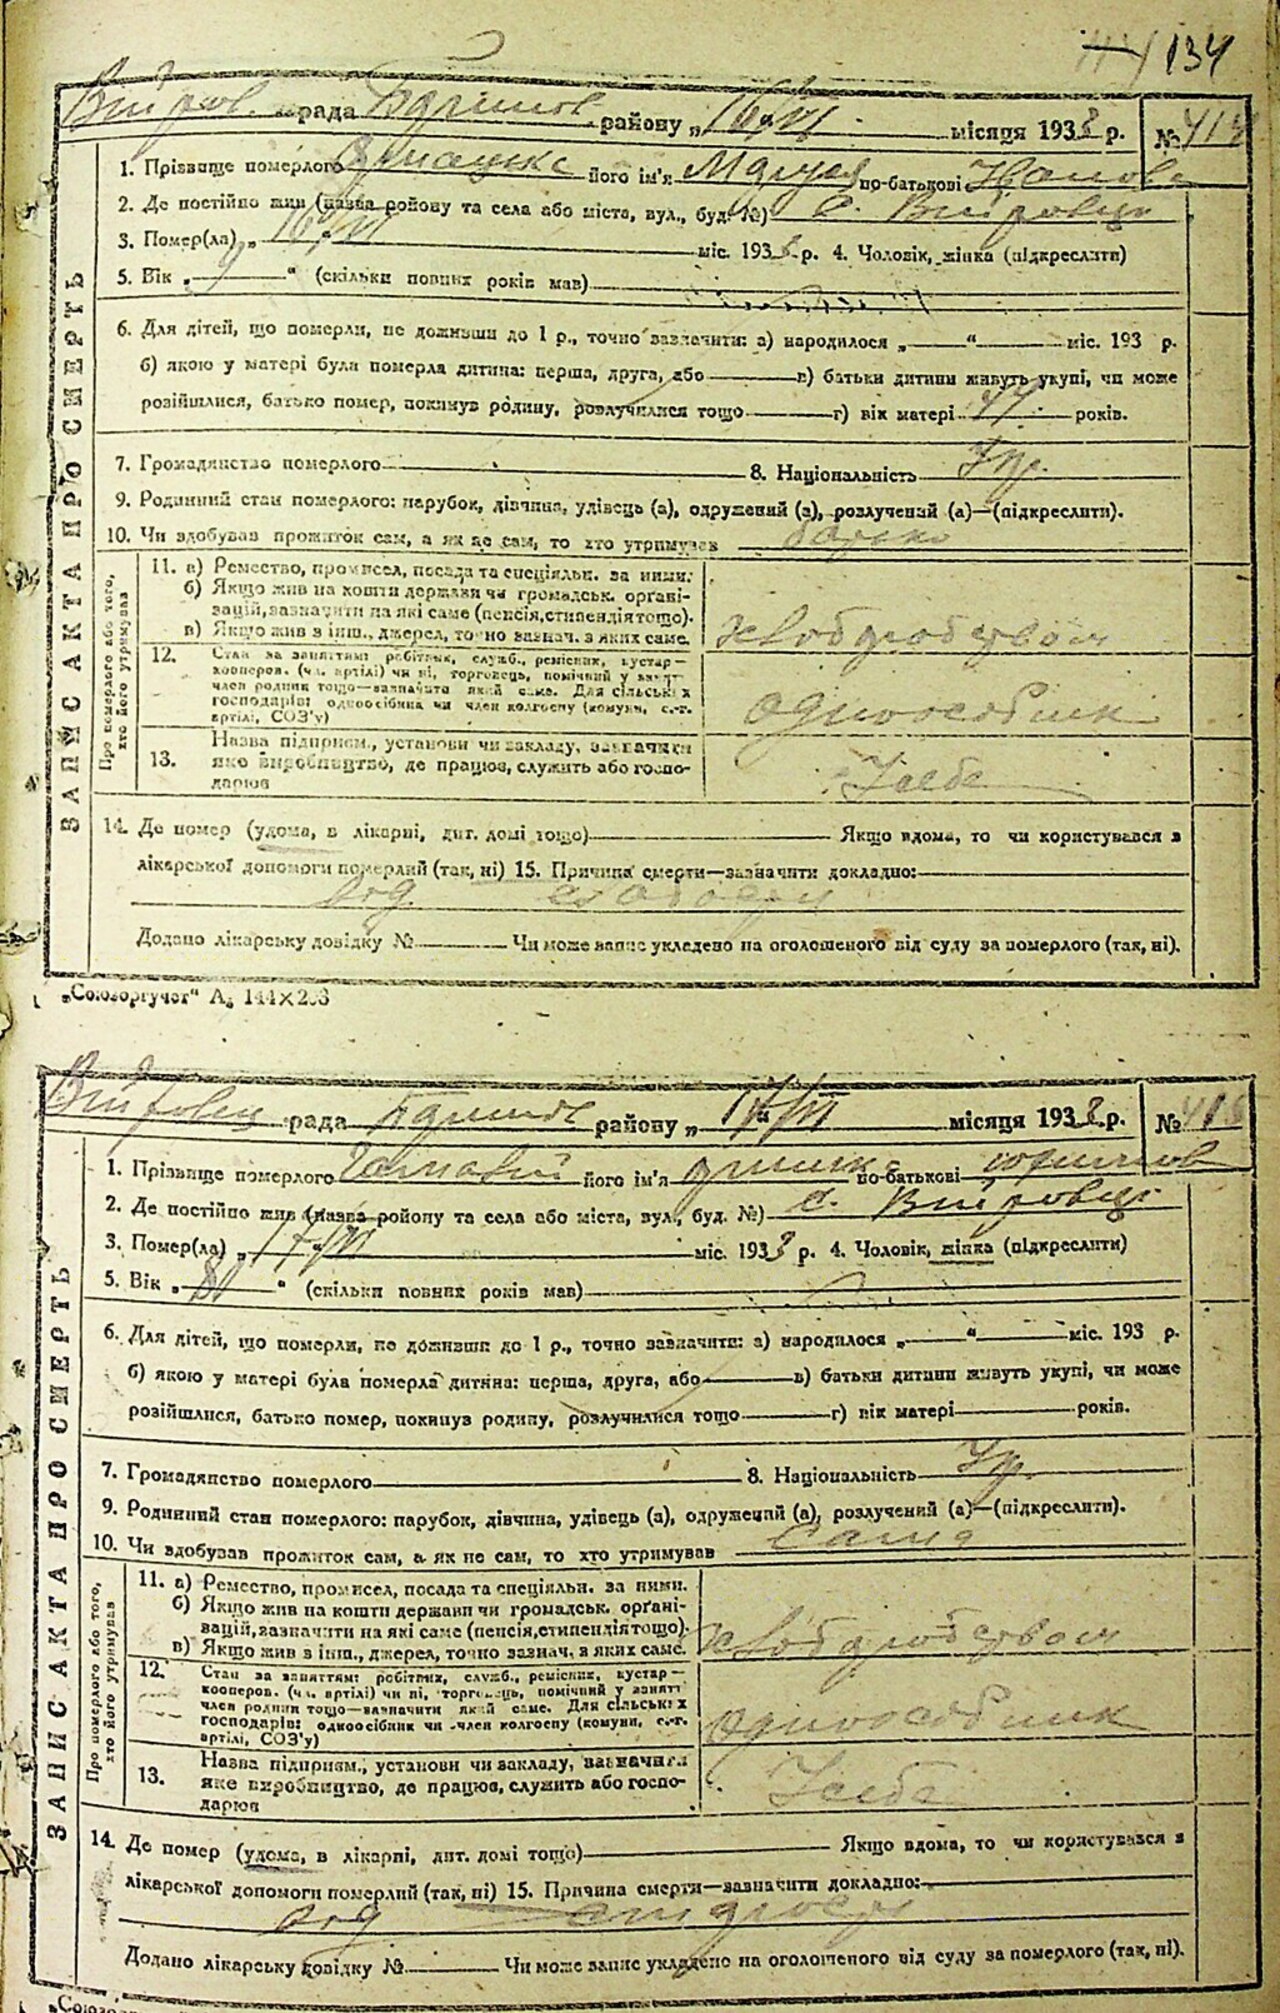 134
рада району „ 16/VI місяця 1933 р. № 414
ЗАПИС АКТА ПРО СМЕРТЬ
1. Прізвище померлого його ім'я по-батькові
2. Де постійно жив (назва району та села або міста, вул., буд. №) с.
3. Помер(ла) „ 16/VI міс. 1933 р. 4. Чоловік, жінка (підкреслити)
5. Вік „ 9 “ (скільки повних років мав)
6. Для дітей, що померли, не доживши до 1 р., точно зазначити: а) народилося „ “ міс. 193 р.
б) якою у матері була померла дитина: перша, друга, або в) батьки дитини живуть укупі, чи може
розійшлися, батько помер, покинув родину, розлучилися тощо г) вік матері років.
7. Громадянство померлого 8. Національність Укр.
9. Родинний стан померлого: парубок, дівчина, удівець (а), одружений (а), розлучений (а)—(підкреслити).
10. Чи здобував прожиток сам, а як не сам, то хто утримував батько
Про померлого або того, хто його утримував
11. а) Ремество, промисел, посада та спеціяльн. за ними.
б) Якщо жив на кошти держави чи громадськ. органі-
зацій, зазначити на які саме (пенсія, стипендія тощо).
в) Якщо жив з інш., джерел, точно зазнач. з яких саме. хліборобством
12. Стан за заняттям: робітник, служб., ремісник, кустар—
кооперов. (чл. артілі) чи ні, торговець, помічний у занятт
член родини тощо—зазначити який саме. Для сільських
господарів: одноосібник чи член колгоспу (комуни, с.-г.
артілі, СОЗ'у) одноособник
13. Назва підприєм., установи чи закладу, зазначити
яке виробництво, де працює, служить або госпо-
дарює У себе
14. Де помер (удома, в лікарні, дит. домі тощо) Якщо вдома, то чи користувався з
лікарської допомоги померлий (так, ні) 15. Причина смерті—зазначити докладно:
від
Додано лікарську довідку № Чи може запис укладено на оголошеного від суду за померлого (так, ні).
„Союзоргучот“ А₆ 144×203
рада району „ 17/VI місяця 1933 р. № 415
ЗАПИС АКТА ПРО СМЕРТЬ
1. Прізвище померлого його ім'я по-батькові
2. Де постійно жив (назва району та села або міста, вул., буд. №) с.
3. Помер(ла) „ 17/VI міс. 1933 р. 4. Чоловік, жінка (підкреслити)
5. Вік „ “ (скільки повних років мав)
6. Для дітей, що померли, не доживши до 1 р., точно зазначити: а) народилося „ “ міс. 193 р.
б) якою у матері була померла дитина: перша, друга, або в) батьки дитини живуть укупі, чи може
розійшлися, батько помер, покинув родину, розлучилися тощо г) вік матері років.
7. Громадянство померлого 8. Національність Укр.
9. Родинний стан померлого: парубок, дівчина, удівець (а), одружений (а), розлучений (а)—(підкреслити).
10. Чи здобував прожиток сам, а як не сам, то хто утримував сама
Про померлого або того, хто його утримував
11. а) Ремество, промисел, посада та спеціяльн. за ними.
б) Якщо жив на кошти держави чи громадськ. органі-
зацій, зазначити на які саме (пенсія, стипендія тощо).
в) Якщо жив з інш., джерел, точно зазнач. з яких саме. хліборобством
12. Стан за заняттям: робітник, служб., ремісник, кустар—
кооперов. (чл. артілі) чи ні, торговець, помічний у занятт
член родини тощо—зазначити який саме. Для сільських
господарів: одноосібник чи член колгоспу (комуни, с.-г.
артілі, СОЗ'у) одноособник
13. Назва підприєм., установи чи закладу, зазначити
яке виробництво, де працює, служить або госпо-
дарює У себе
14. Де помер (удома, в лікарні, дит. домі тощо) Якщо вдома, то чи користувався з
лікарської допомоги померлий (так, ні) 15. Причина смерті—зазначити докладно:
від
Додано лікарську довідку № Чи може запис укладено на оголошеного від суду за померлого (так, ні).